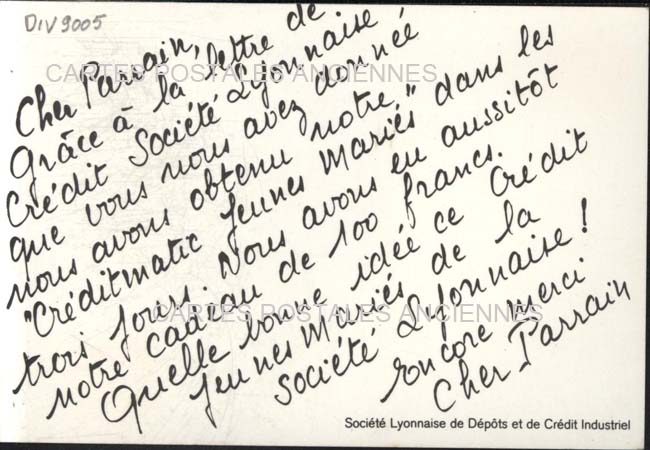 DIV 9005
Cher Parrain,
Grâce à la lettre de
Crédit Société Lyonnaise,
que vous nous avez donnée
nous avons obtenu notre
"Créditmatic Jeunes Mariés" dans les
trois jours. Nous avons eu aussitôt
notre cadeau de 100 francs.
Quelle bonne idée ce Crédit
Jeunes Mariés de la
Société Lyonnaise !
Encore merci
Cher Parrain
Société Lyonnaise de Dépôts et de Crédit Industriel
CARTES POSTALES ANCIENNES
CARTES POSTALES ANCIENNES